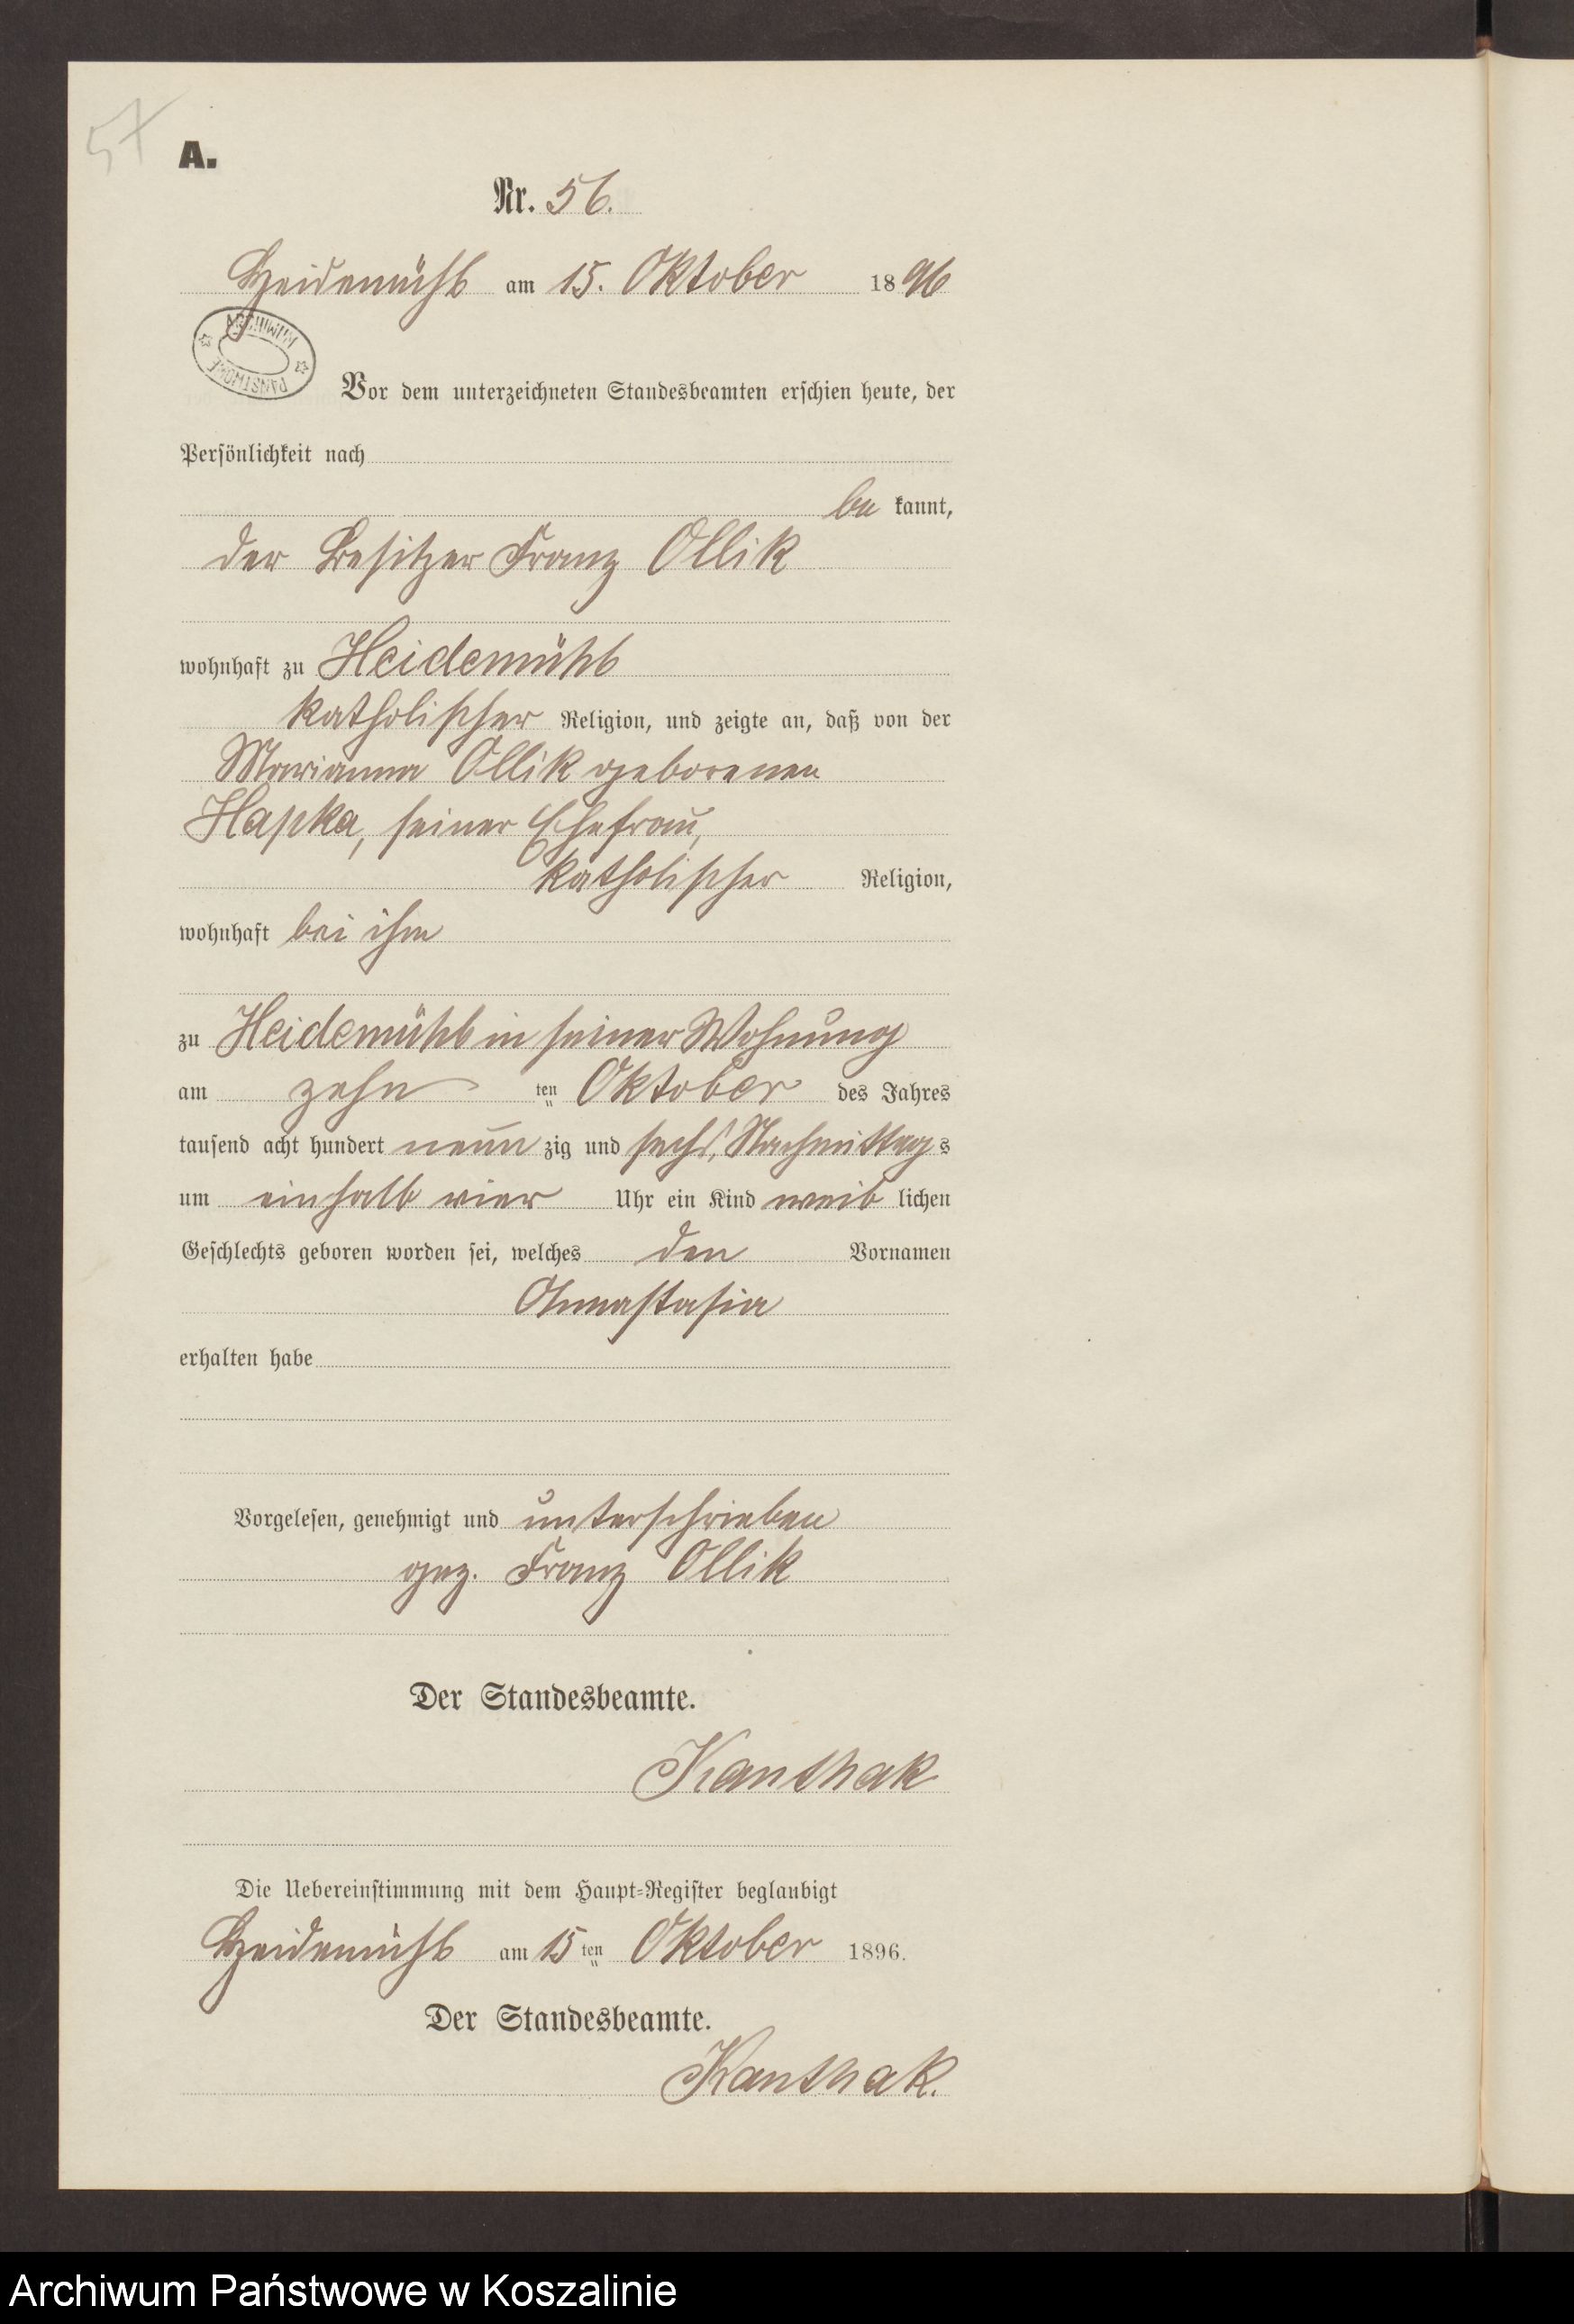 57
A.
Nr. 56.
Heidemühl am 15. Oktober 1896
ARCHIWUM PAŃSTWOWE
Vor dem unterzeichneten Standesbeamten erschien heute, der
Persönlichkeit nach
be kannt,
der Besitzer Franz Ollik
wohnhaft zu Heidemühl
katholischer Religion, und zeigte an, daß von der
Marianna Ollik geborenen
Hapka, seiner Ehefrau,
katholischer Religion,
wohnhaft bei ihm
zu Heidemühl in seiner Wohnung
am zehn ten Oktober des Jahres
tausend acht hundert neun zig und sechs, Nachmittag s
um einhalb vier Uhr ein Kind weib lichen
Geschlechts geboren worden sei, welches den Vornamen
Annastasia
erhalten habe
Vorgelesen, genehmigt und unterschrieben
gez. Franz Ollik
Der Standesbeamte.
Kanthak
Die Uebereinstimmung mit dem Haupt-Register beglaubigt
Heidemühl am 15 ten Oktober 1896.
Der Standesbeamte.
Kanthak.
Archiwum Państwowe w Koszalinie